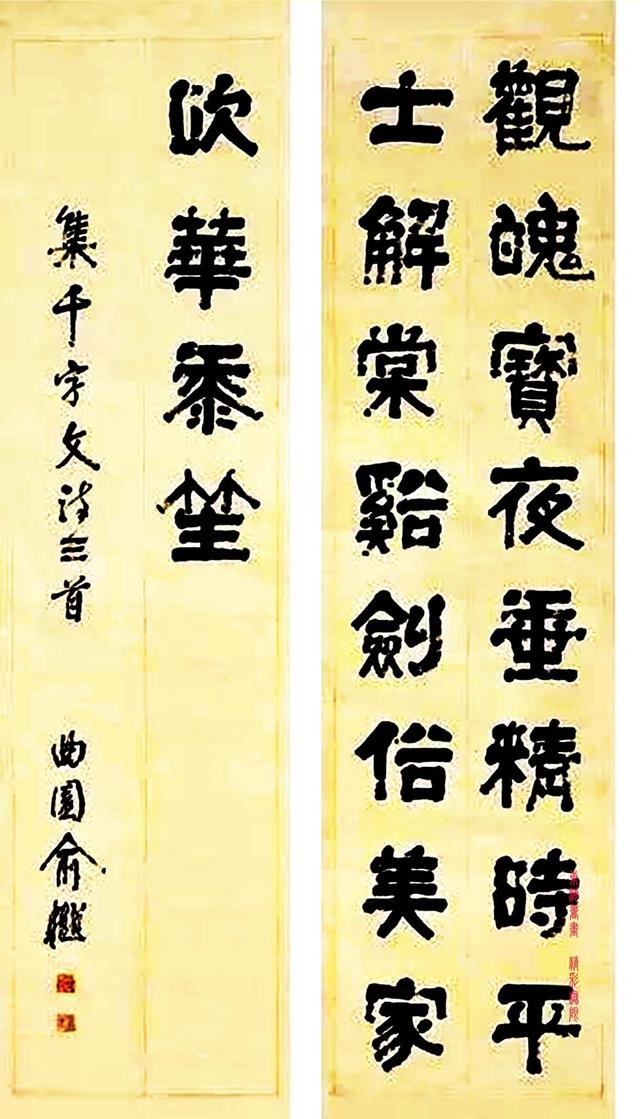 觀魄寶夜垂精時平
士解棠谿劍俗美家
吹華黍笙
集千字文詩三首
曲園俞樾